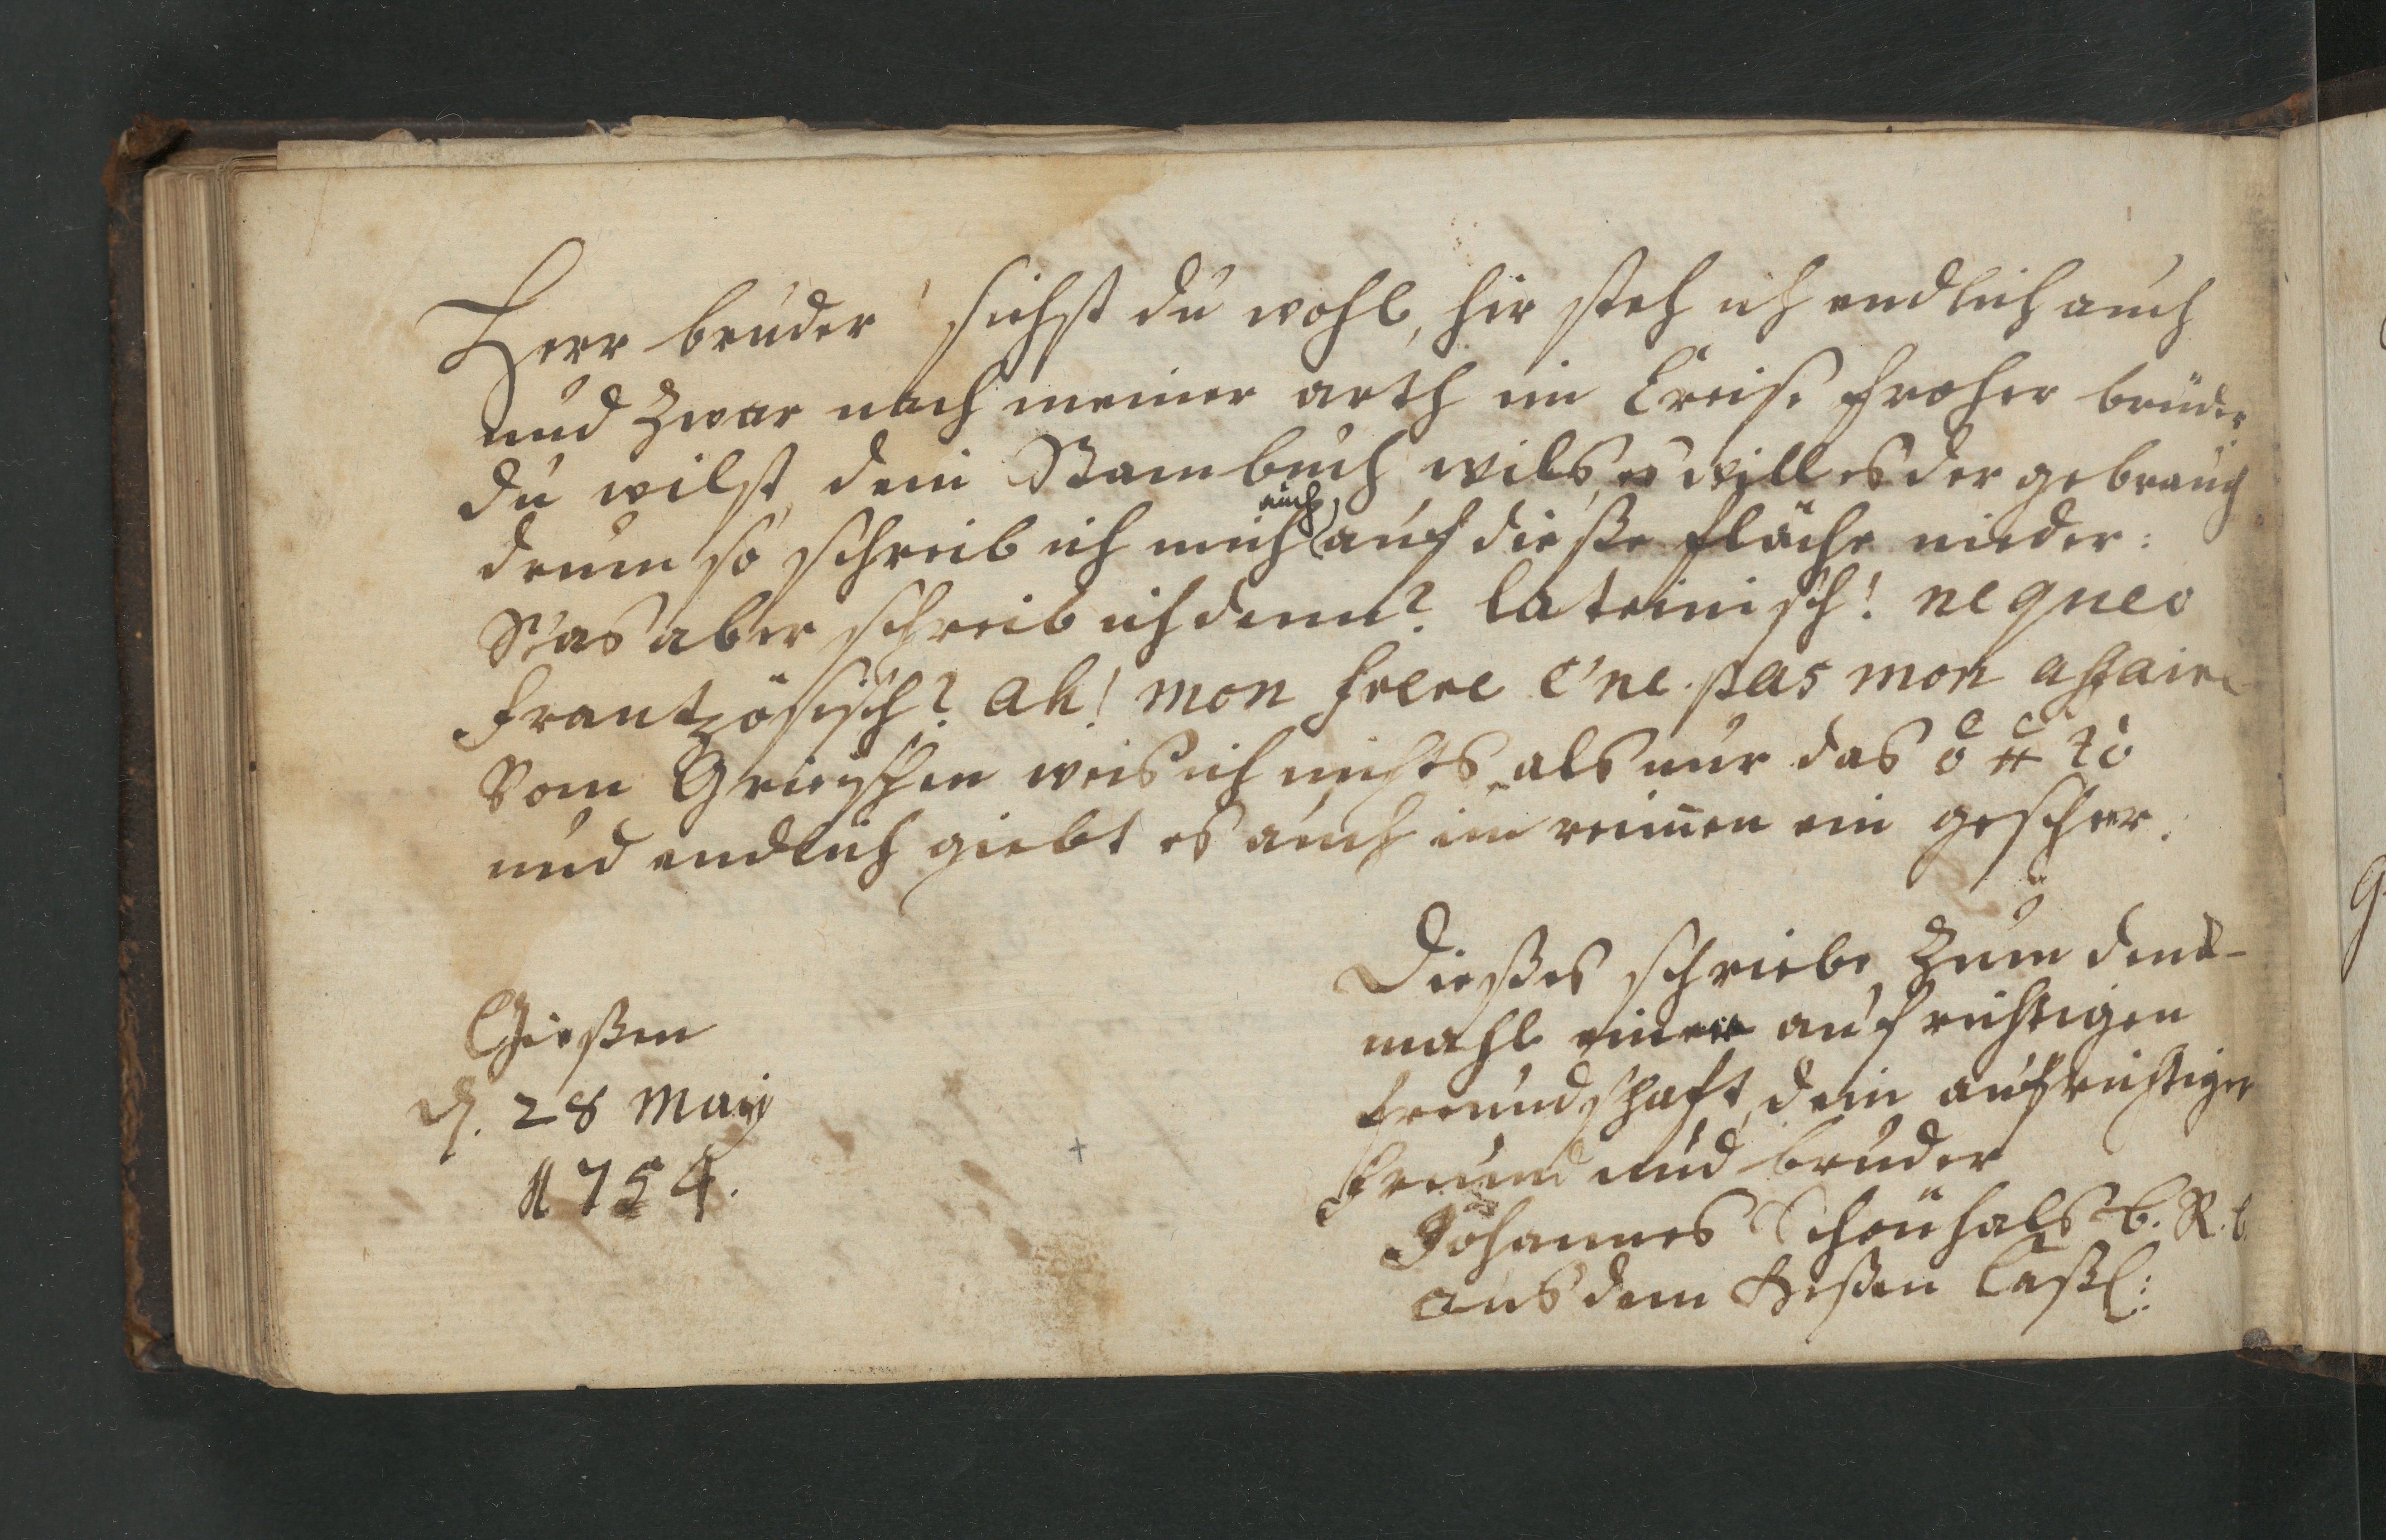 Herr bruder sichst du wohl, hir steh ich endlich auch
und Zwar nach meiner arth im Creise froher brüder
du wilst, dein Stambuch wils, es will es der gebrauch
drum so schreib ich mich auch auf dieße fläche nieder:
Was aber schreib ich denn? lateinisch! nequeo
frantzösisch? ah! mon frere c'ne pas mon affaire
Vom Griegschen weis ich nichts als nur das ὁ ἡ τὸ
und endlich giebt es auch im reimen ein gescheer.
Dießes schriebe Zum denck-
mahl einer aufrichtigen
freundschaft, dein aufrichtiger
freund und bruder
Johannes Schönhals
aus dem Heßen Caßl:
Gießen
d. 28 Maij
1754.